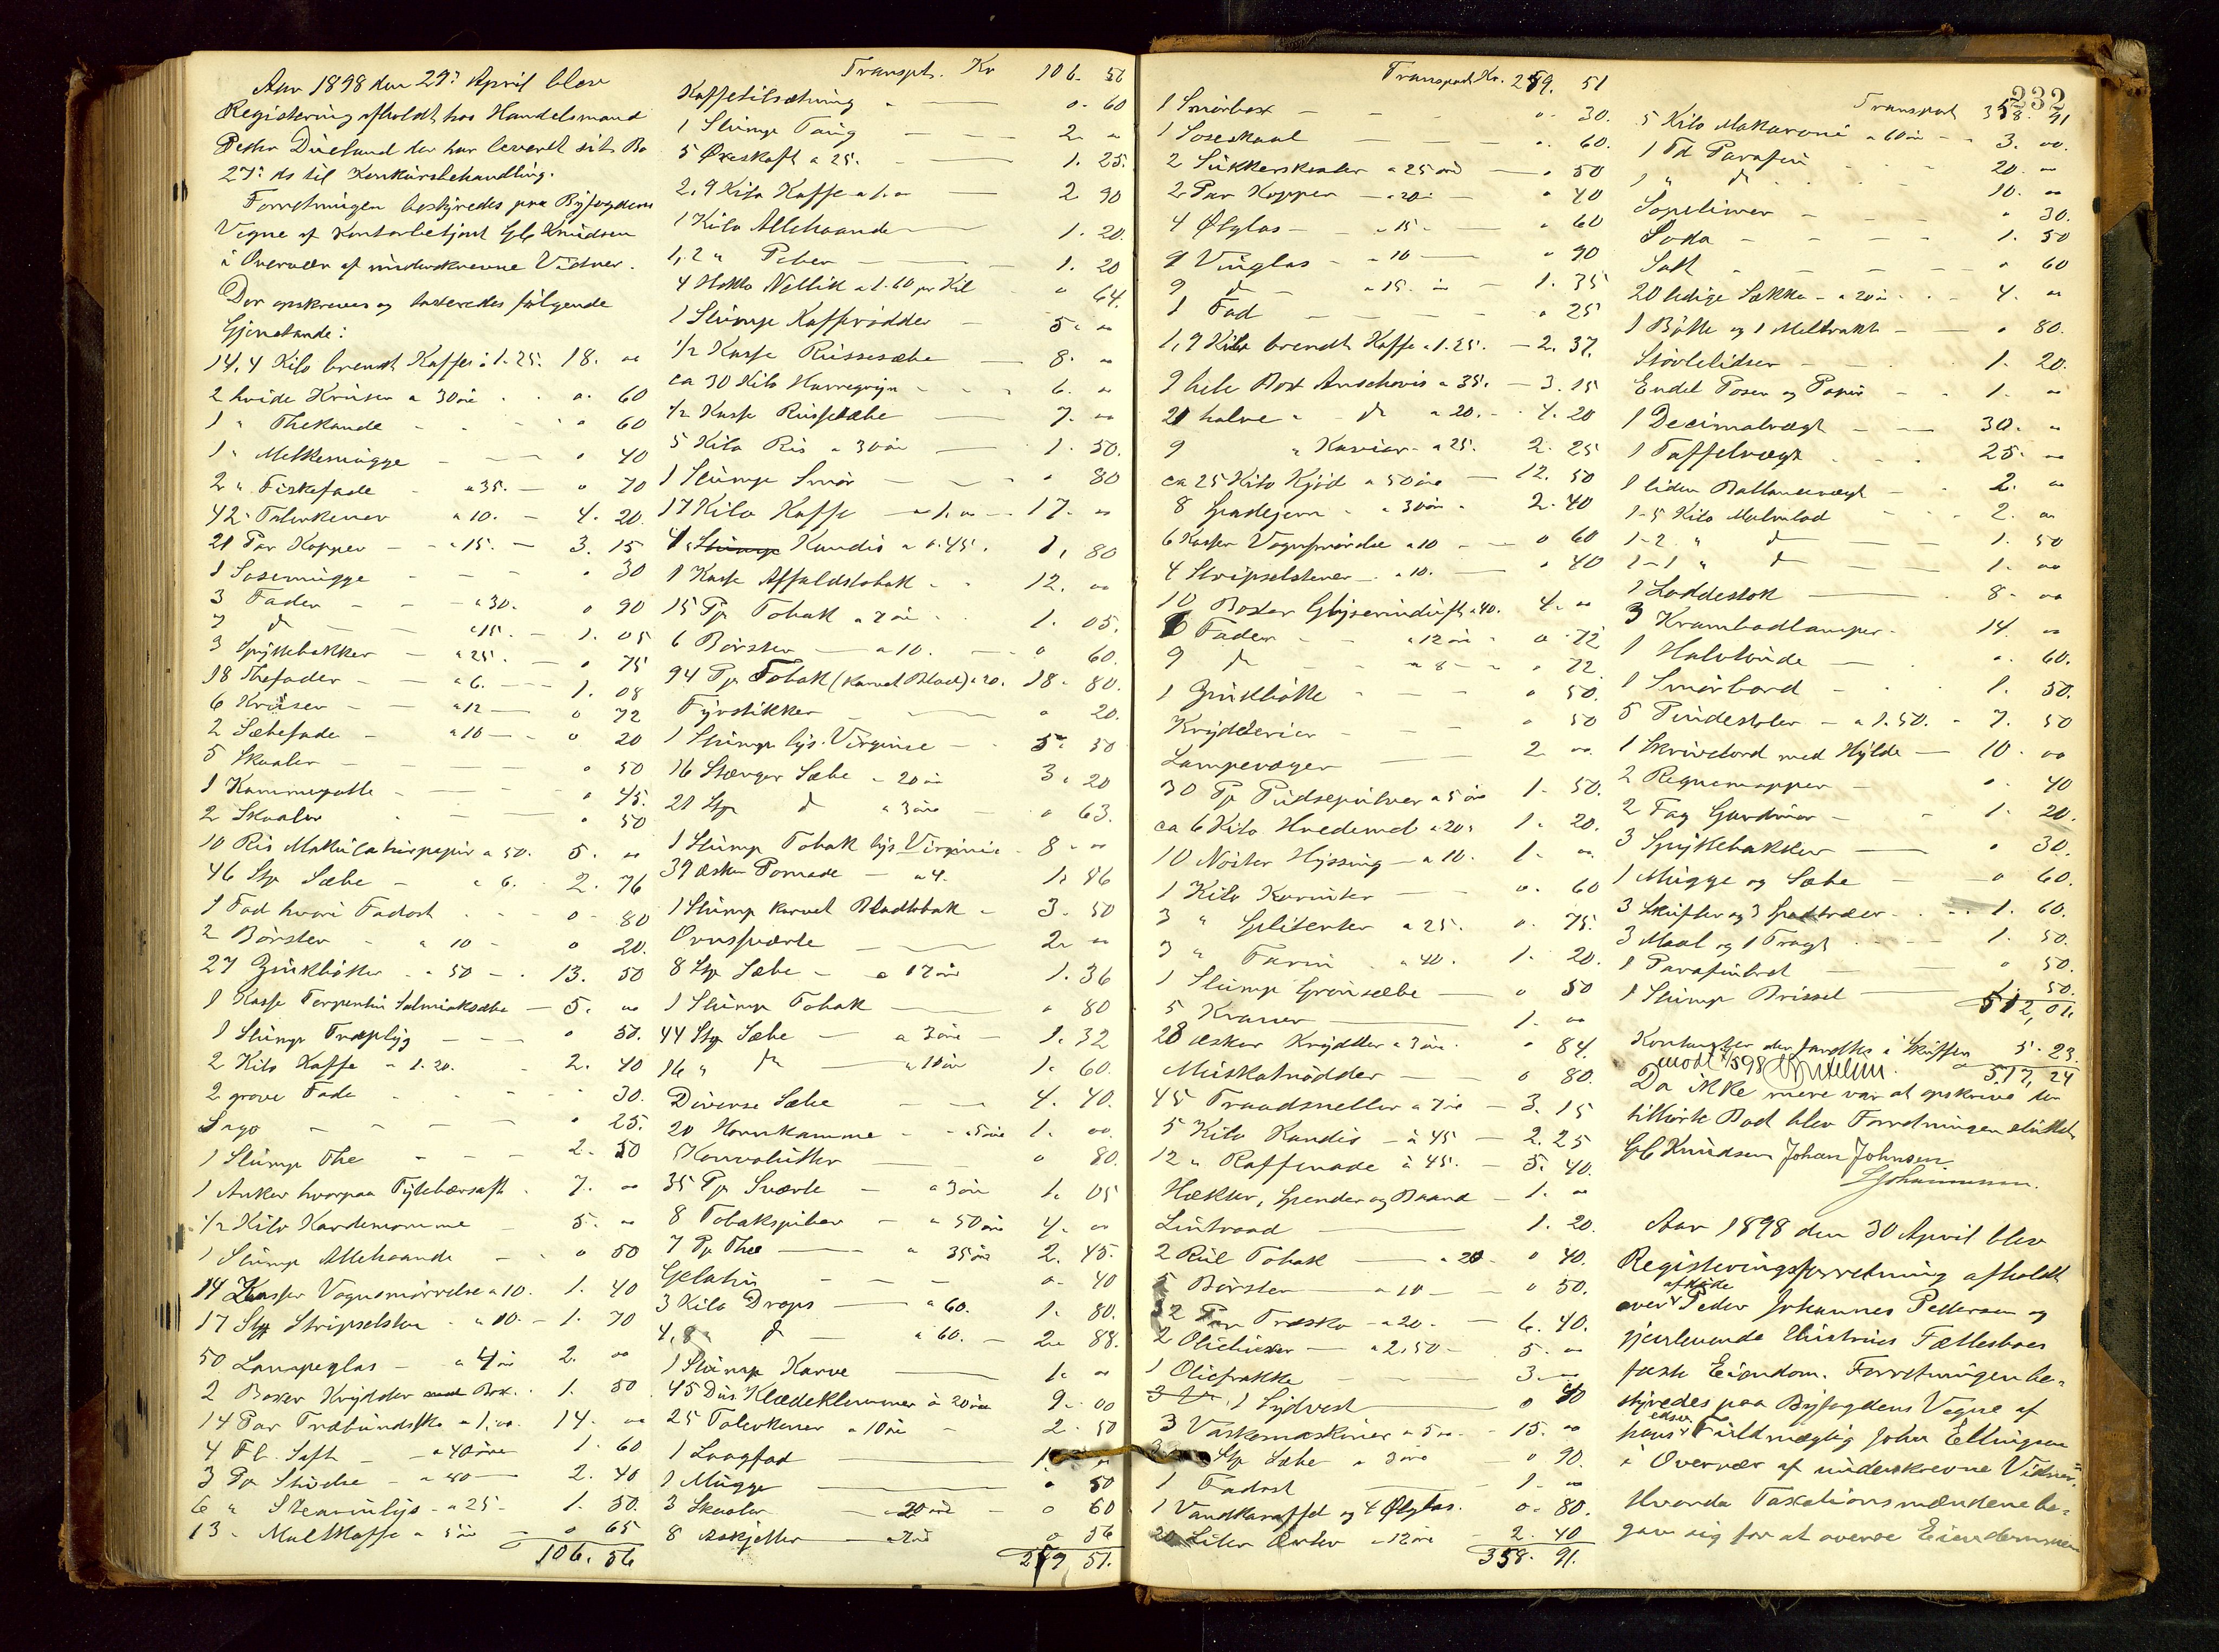 Aar 1898 den 29de April blev
Registering afholdt hos Handelsmand
Peder Duelund der har leveret sit Bo
27de ds til Konkursbehandling.
Forretningen bestyredes paa Byfogdens
Vegne af Kontorbetjent Knudsen
i Overvær af underskrevne Vidner.
Der opskreves og taxeredes følgende
Gjenstande:
14,4 Kilo brendt Kaffe à 1.25. 18. "
2 hvide Kruser a 30 øre 0. 60
1 " Thekande " 60
1 " Melkemugge " 40
2 " Fiskefade a 35. 0 70
42 Talerkener a 10. 4. 20
21 Par Kopper a 15. 3. 15
1 Sosemugge " 30
3 Fader a 30. 0 90
7 do a 15. 1. 05
3 Spyttebakker a 25. 0 75
18 Thefader a 6. 1. 08
6 Kruser a 12 0 72
2 Sæbefade a 10 0 20
5 Skaaler 0 50
1 Kammepotte 0 45.
2 Skaaler 0 50
10 Ris Makulaturpapir a 50. 5. "
46 Stp Sæbe a 6. 2. 76
1 Fad hvori Fadost 0 80
2 Børster a 10 0 20.
27 Zinkbøtter a 50 13. 50
1 Kasse Terpentin Salmiaksæbe 5. "
1 Slump 0 50.
2 Kilo Kaffe a 1.20. 2. 40
2 grove Fade 30.
Sago 0 25.
1 Slump The 2. 50
1 Anker hvorpaa Tytebærsaft 7. "
1/2 Kilo Kardemomme 5. "
1 Slump Allehaande 0 50
14 Kasser Vognsmørrelse a 10. 1. 40
17 Stp Stripselsten a 10. 1. 70
50 Lampeglas a 4 øre 2. "
2 Boxer Krydder Box. 1. 50
14 Par Træbundssko a 1,00. 14. "
4 Fl. Saft a 40 øre 1. 60
3 Pp Stivelse 2. 40
6 " Stearinlys a 25 1. 50.
13 " Maltkaffe a 5 øre 0 65
106. 56
Transpt. Kr 106. 56
Kaffetilsætning 0. 60
1 Slump Taug 2. "
5 Øxeskaft a 25. 1. 25.
2,9 Kilo Kaffe a 1. " 2 90
1 Kilo Allehaande 1. 20.
1,2 " Peber 1. 20
4 Hekto Nellik a 1.60 pr Kil 0 64.
1 Slump Kafferødder 5. "
1/2 Kasse Russesæbe 8. "
ca 30 Kilo Havregryn 6. "
1/2 Kasse Russesæbe 7. "
5 Kilo Ris a 30 øre 1. 50.
1 Slump Smør 0 80
17 Kilo Kaffe a 1. " 17. "
4 Kandis a 0.45. 1. 80
1 Kasse Affaldstobak 12. "
15 Pp Tobak a 7 øre 1. 05.
6 Børster a 10. 0 60.
94 Pp Tobak (Karvet Blad) a 20. 18. 80.
Fyrstikker 0 20.
1 Slump lys Virginie 5. 50
16 Stænger Sæbe a 20 øre 3. 20
21 Stp do a 3 øre 0 63.
1 Slump Tobak lys Virginie 8. "
39 Æsker Pomade a 4. 1. 56
1 Slump karvet Bladtobak 3. 50
Ovnsværte 2. "
8 Stp Sæbe a 17 øre 1. 36
1 Slump Tobak 0 80
44 Stp Sæbe a 3 øre 1. 32
16 " do a 10 øre 1. 60.
Diverse Sæbe 4. 40.
20 Hornkamme a 5 øre 1. 00.
Konvolutter 0 80.
35 Pp Sværte a 3 øre 1. 05
8 Tobakspiber a 50 øre 4. "
7 Pp The a 35 øre 2. 45.
Gelatin 0. 40
3 Kilo Drops a 60. 1. 80.
4,8 " do a 60. 2. 88.
1 Slump Karve 1. "
45 Dus. Klædeklemmer à 20 øre 9. 00
25 Talerkener a 10 øre 2. 50
1 Langfad 1. "
1 Mugge 0 50
3 Skaaler a 20 øre 0 60
8 Askjetter a 7 øre 0 56
259 51.
Transport Kr. 259. 51
1 Smørbox 0. 30.
1 Soseskaal 0. 60.
2 Sukkerskaaler a 25 øre 0 50
2 Par Kopper a 20 0 40
4 Ølglas a 15 0 60
9 Vinglas a 10 0 90
9 do a 15. 1. 35
1 Fad 0 25
1,9 Kilo brendt Kaffe a 1.25. 2. 37.
9 hele Box Anschovis a 35. 3. 15
21 halve " do a 20. 4. 20
9 " Kaviar a 25. 2. 25
ca 25 Kilo Kjød a 50 øre 12. 50
8 Spadejern a 30 øre 2. 40
6 Kasser Vognsmørelse a 10 0 60
4 Stripselstener a 10. 0 40
10 Boxer a 40. 4. "
6 Fader a 12 øre 0. 72
9 do a 8 0 72
1 Zinkbøtte 0 50.
Krydderier 0 50
Lampevæger 2 "
30 Pp Pudsepulver a 5 øre 1. 50.
ca 6 Kilo Hvedemel a 20 1. 20.
10 Nøster Hyssing a 10. 1. "
1 Kilo Korinter 0. 60
3 " Spliterter a 25. 0. 75.
3 " Farin a 40. 1. 20.
1 Slump Grønsæbe 0 50
5 Kraner 1. "
28 Æsker Krydder a 3 øre 0 84.
Muskatnødder 0 80.
45 Traadsneller a 7 øre 3. 15
5 Kilo Kandis à 45 2. 25
12 " Raffinade à 45. 5. 40.
Hækter, Spender og Baand 1. "
Lintraad 1. 20.
2 Rul Tobak a 20 0 40.
5 Børster a 10 0 50.
32 Par Træsko a 20. 6. 40.
2 a 2,50 5. "
1 Oliefrakke 3. "
1 Sydvest 0 40
3 Vaskemaskiner a 5 15. "
Stp Sæbe a 3 øre 0 90.
1 Fadost 1. "
1 Vandkaraffel og 4 Ølglas. 0. 80.
20 Liter Erter a 12 øre 2. 40
358. 91.
232
Transport 358. 91
5 Kilo Makaroni a 60 øre 3. 00.
1 Fd Parafin 20. "
1 " do 10. "
Sopelimer 0 30.
Soda 1. 50
Salt 0 60
20 ledige Sække a 20 øre 4. "
1 Bøtte og 1 Meltrakt 0 80.
Støvlelidser 1. 20.
Endel Poser og Papir 1. "
1 Decimalvægt 30. "
1 Taffelvægt 25. "
1 liden Ballancevægt 2. "
1-5 Kilo Malmlod 2. "
1-2 " do 1. 50
1-1 " do 1. "
1 Loddestok 8. "
3 Krambodlamper 14. "
1 Halvtønde 0. 60.
1 Smørbord 1. 50.
5 Pindestoler a 1.50. 7. 50
1 Skrivebord med Hylde 10. "
2 Regnemapper 0. 40
2 Fag Gardiner 1. 20.
3 Spyttebakker 0 30.
1 Mugge og Sæbe 0 60.
3 Skuffer og 3 1. 60.
3 Maal og 1 Tragt 1. 50.
1 Parafinbret 0 50.
1 Slump Brissel 1. 50.
512, 01.
Kontanter der fandtes i Skuffen 5. 23.
517, 24
Da ikke mere var at opskrive den
tilhørte Bod blev Forretningen sluttet
Knudsen Johan Johnsen
Aar 1898 den 30 April blev
Registeringsforretning afholdt
over afdøde Peder Johannes Pettersen og
gjenlevende Enkes Fællesboes
faste Eiendom. Forretningen be-
styredes paa Byfogdens Vegne af
hans edsv. Fuldmægtig John Ellingsen
i Overvær af underskrevne Vidner.
Hvorda Taxationsmændene be-
gav sig for at overse Eiendommen